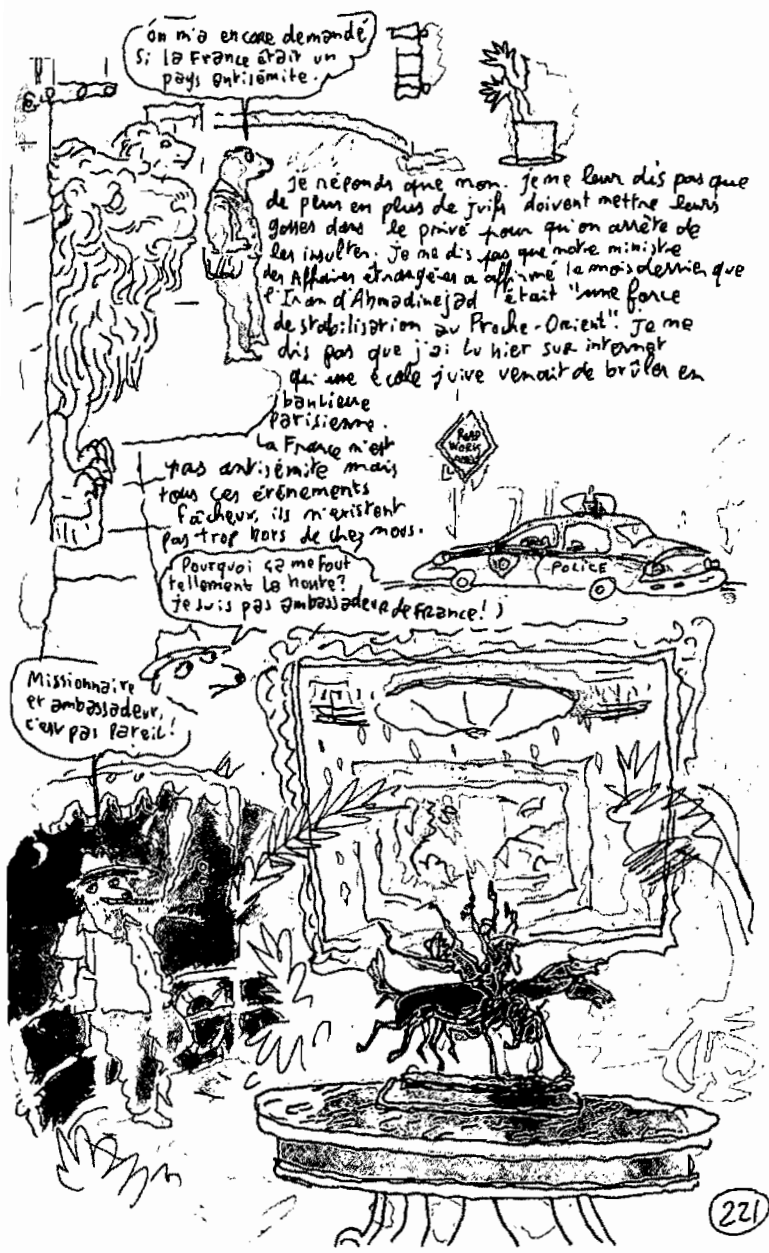 On m'a encore demandé
si la France était un
pays antisémite.
je réponds que non. je me leur dis pas que
de plus en plus de juifs doivent mettre leurs
gosses dans le privé pour qu'on arrête de
les insulter. Je me dis pas que notre ministre
des Affaires étrangères a affirmé le mois dernier que
l'Iran d'Ahmadinejad était "une force
de stabilisation au Proche-Orient". Je me
dis pas que j'ai lu hier sur internet
qu'une école juive venait de brûler en
banlieue
parisienne.
La France n'est
pas antisémite mais
tous ces événements
fâcheux, ils n'existent
pas trop hors de chez nous.
ROAD
WORK
AHEAD
POLICE
Pourquoi ça me fout
tellement la honte?
je suis pas ambassadeur de France!
Missionnaire
et ambassadeur,
c'est pas pareil!
221